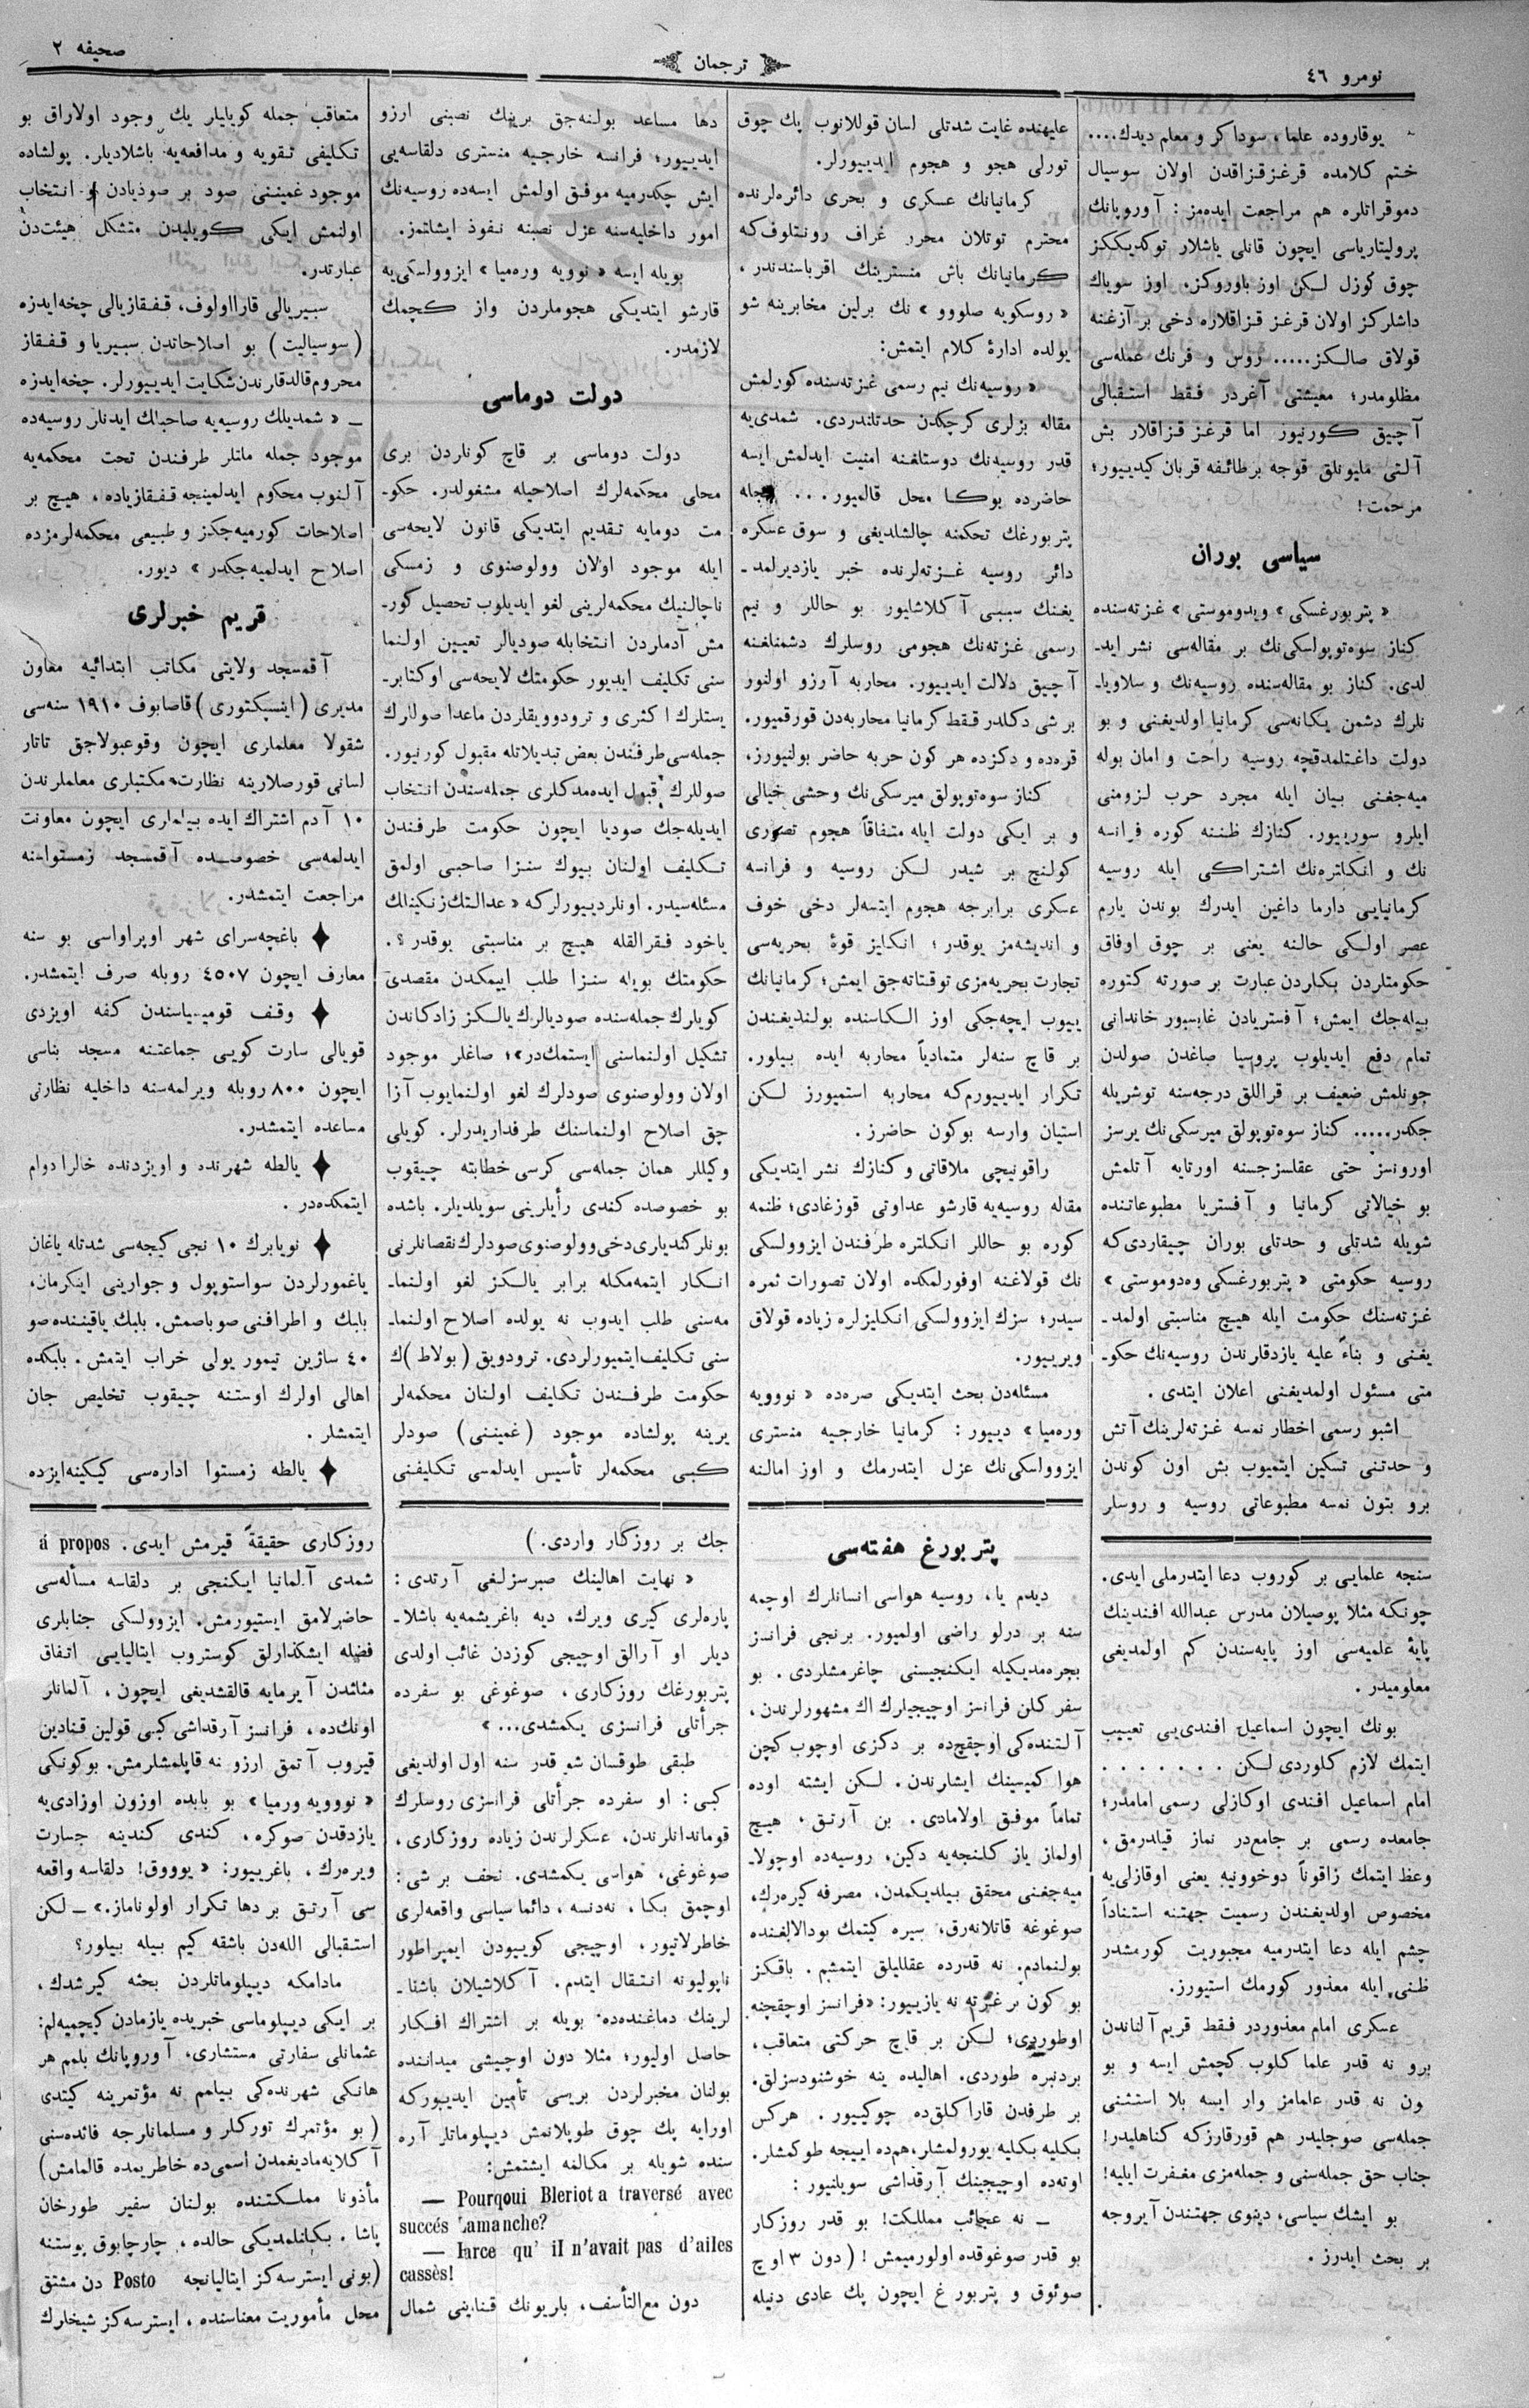 نومرو ٤٦
ترجمان
صحيفه ٢
يوقاروده علما، سوداكر و معلم ديدك....
ختم كلامده قرغزقزاقدن اولان سوسيال
دموقراتلره هم مراجعت ايدهمز: آوروپانك
پروليتارياسی ايچون قانلی ياشلار توكديككز
چوق كوزل لكن اوز باوروكز، اوز سوياك
داشلركز اولان قرغز قزاقلاره دخی بر آزغنه
قولاق صالكز..... روس و فرنك عملهسی
مظلومدر؛ معيشتی آغردر فقط استقبالی
آچيق كورنيور اما قرغز قزاقلار بش
آلتی مليونلق قوجه برطائفه قربان كيدييور؛
مرحمت!
سياسی بوران
« پتربورغسكی » ويدوموستی » غزتهسنده
كناز سوهتوپولسكینك بر مقالهسی نشر ايد-
لدی. كناز بو مقالهسنده روسيهنك و سلاويا-
نلرك دشمن يكانهسی كرمانيا اولديغنی و بو
دولت داغتلمدقچه روسيه راحت و امان بوله
ميهجغنی بيان ايله مجرد حرب لزومنی
ايلرو سورييور. كنازك ظننه كوره فرانسه
نك و انكلترهنك اشتراكی ايله روسيه
كرمانيايی دارما داغين ايدرك بوندن يارم
عصر اولكی حالنه يعنی بر چوق اوفاق
حكومتلردن بكلردن عبارت بر صورته كتوره
بيلهجك ايمش؛ آفستريادن غابسبور خاندانی
تمام دفع ايديلوب پروسيا صاغدن صولدن
جونلمش ضعيف بر قراللق درجهسنه توشريله
جكدر..... كناز سوهتوپولق ميرسكینك يرسز
اورونسز حتی عقلسزجسنه اورتايه آتلمش
بو خيالاتی كرمانيا و آفستريا مطبوعاتنده
شويله شدتلی و حدتلی بوران چيقاردیكه
روسيه حكومتی « پتربورغسكی وهدوموستی »
غزتهسنك حكومت ايله هيچ مناسبتی اولمد-
يغنی و بناءً عليه يازدقارندن روسيهنك حكو-
متی مسئول اولمديغنی اعلان ايتدی.
اشبو رسمی اخطار نمسه غزتهلرينك آتش
و حدتنی تسكين ايتميوب بش اون كوندن
برو بتون نمسه مطبوعاتی روسيه و روسلر
عليهنده غايت شدتلی لسان قوللانوب پك چوق
تورلی هجو و هجوم ايدييورلر.
كرمانيانك عسكری و بحری دائرهلرنده
محترم توتلان محرر غراف رونتلوفكه
كرمانيانك باش منسترينك اقرباسندندر،
« روسكويه صلووو » نك برلين مخابرينه شو
يولده ادارهٔ كلام ايتمش:
« روسيهنك نيم رسمی غزتهسنده كورلمش
مقاله بزلری كرچكدن حدتلندردی. شمدییه
قدر روسيهنك دوستلغنه امنيت ايدلمش ايسه
حاضرده بوكا محل قالميور...
پتربورغك تحكمنه چالشلديغی و سوق عسكره
دائر روسيه غزتهلرنده خبر يازديرلمد-
يغنك سببی آكلاشليور بو حاللر و نيم
رسمی غزتهنك هجومی روسلرك دشمنلغنه
آچيق دلالت ايدييور. محاربه آرزو اولنور
برشی دكلدر فقط كرمانيا محاربهدن قورقميور.
قرهده و دكزده هر كون حربه حاضر بولنيورز،
كناز سوهتوپولق ميرسكینك وحشی خيالی
و بر ايكی دولت ايله متفاقاً هجوم تصوری
كولنچ بر شيدر لكن روسيه و فرانسه
عسكری برابرجه هجوم ايتسهلر دخی خوف
و انديشهمز يوقدر؛ انكليز قوهٔ بحريهسی
تجارت بحريهمزی توقتاتهجق ايمش؛ كرمانيانك
ييوب ايچهجكی اوز الكاسنده بولنديغندن
بر قاچ سنهلر متمادياً محاربه ايده بيلور.
تكرار ايدييورمكه محاربه استميورز لكن
استيان وارسه بوكون حاضرز.
راقونيچی ملاقاتی و كنازك نشر ايتديكی
مقاله روسيهيه قارشو عداوتی قوزغادی؛ ظنمه
كوره بو حاللر انكلتره طرفندن ايزوولسكی
نك قولاغنه اوفورلمكده اولان تصورات ثمره
سيدر؛ سزك ايزوولسكی انكليزلره زياده قولاق
ويرييور.
مسئلهدن بحث ايتديكی صرهده « نووويه
ورهميا » دييور: كرمانيا خارجيه منستری
ايزوولسكینك عزل ايتدرمك و اوز امالنه
دها مساعد بولنهجق برينك نصبنی ارزو
ايدييور؛ فرانسه خارجيه منستری دلقاسهيی
ايش چكدرميه موفق اولمش ايسهده روسيهنك
امور داخليهسنه عزل نصبنه نفوذ ايشلتمز.
بويله ايسه « نوويه ورهميا » ايزوولسكییه
قارشو ايتديكی هجوملردن واز كچمك
لازمدر.
دولت دوماسی
دولت دوماسی بر قاچ كونلردن بری
محلی محكمهلرك اصلاحيله مشغولدر. حكو-
مت دومايه تقديم ايتديكی قانون لايحهسی
ايله موجود اولان وولوصنوی و زمسكی
ناچالنيك محكمهلرينی لغو ايديلوب تحصيل كور-
مش آدملردن انتخابله صوديالر تعيين اولنما
سنی تكليف ايديور حكومتك لايحهسی اوكتابر-
يستلرك اكثری و ترودوويقلردن ماعدا صوللرك
جملهسی طرفندن بعض تبديلاتله مقبول كورنيور.
صوللرك قبول ايدهمدكلری جملهسندن انتخاب
ايديلهجك صوديا ايچون حكومت طرفندن
تكليف اولنان بيوك سنزا صاحبی اولمق
مسئلهسيدر. اونلردييورلركه « عدالتك زنكينلك
ياخود فقرالقله هيچ بر مناسبتی يوقدر؟.
حكومتك بويله سنزا طلب ايتمكدن مقصدی
كويلرك جملهسنده صوديالرك يالكز زادكاندن
تشكيل اولنماسنی ايستمكدر»؛ صاغلر موجود
اولان وولوصنوی صودلرك لغو اولنمايوب آزا
چق اصلاح اولنماسنك طرفداريدرلر. كويلی
وكيللر همان جملهسی كرسی خطابته چيقوب
بو خصوصده كندی رأيلرينی سويلديلر. باشده
بونلر كنديلری دخی وولوصنوی صودلرك نقصانلرنی
انكار ايتمهمكله برابر يالكز لغو اولنما-
مهسنی طلب ايدوب نه يولده اصلاح اولنما-
سنی تكليف ايتميورلردی. ترودويق (بولاط)ك
حكومت طرفندن تكليف اولنان محكمهلر
يرينه پولشاده موجود (غمينی) صودلر
كبی محكمهلر تأسيس ايدلمسی تكليفنی
متعاقب جمله كويليلر يك وجود اولاراق بو
تكليفی تقويه و مدافعهيه باشلاديلر. پولشاده
موجود غمينی صود بر صوديادن و انتخاب
اولنمش ايكی كويليدن متشكل هيئتدن
عبارتدر.
سبيريالی قارااولوف، قفقازيالی چخهايدزه
(سوسياليت) بو اصلاحاتدن سبيريا و قفقاز
محروم قالدقارندن شكايت ايدييورلر. چخهايدزه
— « شمديلك روسيهيه صاحبلك ايدنلر روسيهده
موجود جمله ملتلر طرفندن تحت محكمهيه
آلنوب محكوم ايدلمينجه قفقازياده، هيچ بر
اصلاحات كورميهجكز و طبيعی محكمهلرمزده
اصلاح ايدلميهجكدر » ديور.
قريم خبرلری
آقمسجد ولايتی مكاتب ابتدائيه معاون
مديری (اينسپكتوری) قاصابوف ١٩١٠ سنهسی
شقولا معلملری ايچون وقوعبولاجق تاتار
لسانی قورصلارينه نظارت مكتبلری معلملرندن
١٠ آدم اشتراك ايده بيلملری ايچون معاونت
ايدلمهسی خصوصيده آقمسجد زمستواسنه
مراجعت ايتمشدر.
باغچهسرای شهر اوپراواسی بو سنه
معارف ايچون ٤٥٠٧ روبله صرف ايتمشدر.
وقف قوميسياسندن كفه اويزدی
قوپالی سارت كويی جماعتنه مسجد بناسی
ايچون ٨٠٠ روبله ويرلمهسنه داخليه نظارتی
مساعده ايتمشدر.
يالطه شهرنده و اويزدنده خالرا دوام
ايتمكدهدر.
نويابرك ١٠ نجی كيجهسی شدتله ياغان
ياغمورلردن سواستوپول و جوارينی اينكرمان،
بلبك و اطرافنی صوباصمش. بلبك ياقيننده صو
٤٠ ساژين تيمور يولی خراب ايتمش. بلبكده
اهالی اولرك اوستنه چيقوب تخليص جان
ايتمشلر.
يالطه زمستوا ادارهسی كيكينهايزده
سنجه علمايی بر كوروب دعا ايتدرملی ايدی.
چونكه مثلا پوصيلان مدرس عبدالله افندينك
پايهٔ علميهسی اوز پايهسندن كم اولمديغی
معلوميدر.
بونك ايچون اسماعيل افندیيی تعييب
ايتمك لازم كلوردی لكن . . . . . . .
امام اسماعيل افندی اوكازلی رسمی امامدر؛
جامعده رسمی بر جامعدر نماز قيلدرمق،
وعظ ايتمك زاقوناً دوخوونيه يعنی اوقازلییه
مخصوص اولديغندن رسميت جهتنه استناداً
چشم ايله دعا ايتدرميه مجبوريت كورمشدر
ظنی ايله معذور كورمك استيورز.
عسكری امام معذوردر فقط قريم آلناندن
برو نه قدر علما كلوب كچمش ايسه و بو
ون نه قدر علمامز وار ايسه بلا استثنی
جملهسی صوجليدر هم قورقارزكه كناهليدر!
جناب حق جملهسنی و جملهمزی مغفرت ايليه!
بو ايشك سياسی، دينوی جهتندن آيروجه
بر بحث ايدرز.
پتربورغ هفتهسی
ديدم يا، روسيه هواسی انسانلرك اوچمه
سنه بر درلو راضی اولميور. برنجی فرانسز
بجرهمديكيله ايكنجيسنی چاغرمشلردی. بو
سفر كلن فرانسز اوچيجيلرك اك مشهورلرندن،
آلتندهكی اوچقچده بر دكزی اوچوب كچن
هوا كميسينك ايشلرندن. لكن ايشته اوده
تماماً موفق اولامادی. بن آرتق، هيچ
اولماز ياز كلنجهيه دكين، روسيهده اوچولا-
ميهجغنی محقق بيلديكمدن، مصرفه كيرهرك،
صوغوغه قاتلانهرق، سيره كيتمك بودالالغنده
بولنمادم. نه قدرده عقلليلق ايتمشم. باقكز
بو كون بر غزته نه يازييور: «فرانسز اوچقچنه
اوطوردی؛ لكن بر قاچ حركتی متعاقب،
بردنبره طوردی. اهاليده ينه خوشنودسزلق.
بر طرفدن قاراكلقده چوكييور. هركس
بكليه بكليه يورولمشلر، همده اييجه طوكمشلر.
اوتهده اوچيجينك آرقداشی سويلنيور:
— نه عجائب مملكت! بو قدر روزكار
بو قدر صوغوقده اولورميمش! (دون ٣ اوچ
صوئوق و پتربورغ ايچون پك عادی دنيله
جك بر روزكار واردی.)
« نهايت اهالينك صبرسزلغی آرتدی:
پارهلری كيری ويرك، ديه باغريشمهيه باشلا-
ديلر او آرالق اوچيجی كوزدن غائب اولدی
پتربورغك روزكاری، صوغوغی بو سفرده
جرأتلی فرانسزی يكمشدی... »
طبقی طوقسان شو قدر سنه اول اولديغی
كبی: او سفرده جرأتلی فرانسزی روسلرك
قوماندانلرندن، عسكرلرندن زياده روزكاری،
صوغوغی، هواسی يكمشدی. تحف برشی:
اوچمق بكا، نهدنسه، دائما سياسی واقعهلری
خاطرلاتيور، اوچيجی كوييودن ايمپراطور
ناپوليونه انتقال ايتدم. آكلاشيلان باشقا-
لرينك دماغندهده بويله بر اشتراك افكار
حاصل اوليور؛ مثلا دون اوچيشی ميداننده
بولنان مخبرلردن بريسی تأمين ايديبوركه
اورايه پك چوق طوپلانمش ديپلوماتلر آره
سنده شويله بر مكالمه ايشتمش:
— Pourqoui Bleriot a traversé avec
succés Lamanche?
— Parce qu' il n'avait pas d'ailes
cassès!
دون مع‌التأسف، بلريونك قناينی شمال
روزكاری حقيقةً قيرمش ايدی. á propos
شمدی آلمانيا ايكنجی بر دلقاسه مسألهسی
حاضرلامق ايستيورمش. ايزوولسكی جنابلری
فضله ايشكذارلق كوستروب ايتاليايی اتفاق
مثلثدن آيرمايه قالقشديغی ايچون، آلمانلر
اونكده، فرانسز آرقداشی كبی قولين قنادين
قيروب آتمق ارزو نه قاپلمشلرمش. بوكونكی
« نووويه ورميا » بو بابده اوزون اوزادییه
يازدقدن صوكره، كندی كندينه جسارت
ويرهرك، باغرييور: « يوووق! دلقاسه واقعه
سی آرتق بر دها تكرار اولوناماز.» — لكن
استقبالی الله‌دن باشقه كيم بيله بيلور؟
مادامكه ديپلوماتلردن بحثه كيرشدك،
بر ايكی ديپلوماسی خبریده يازمادن كچميهلم:
عثمانلی سفارتی مستشاری، آوروپانك بلمم هر
هانكی شهرندهكی بيلمم نه مؤتمرينه كيتدی
(بو مؤتمرك توركلر و مسلمانلرجه فائدهسنی
آكلايهماديغمدن اسمیده خاطريمده قالمامش)
مأذونا مملكتنده بولنان سفير طورخان
پاشا، بكلنلمديكی حالده، چارچابوق پوستنه
(بونی ايسترسهكز ايتاليانجه Posto دن مشتق
محل مأموريت معناسنده، ايسترسهكز شيخلرك